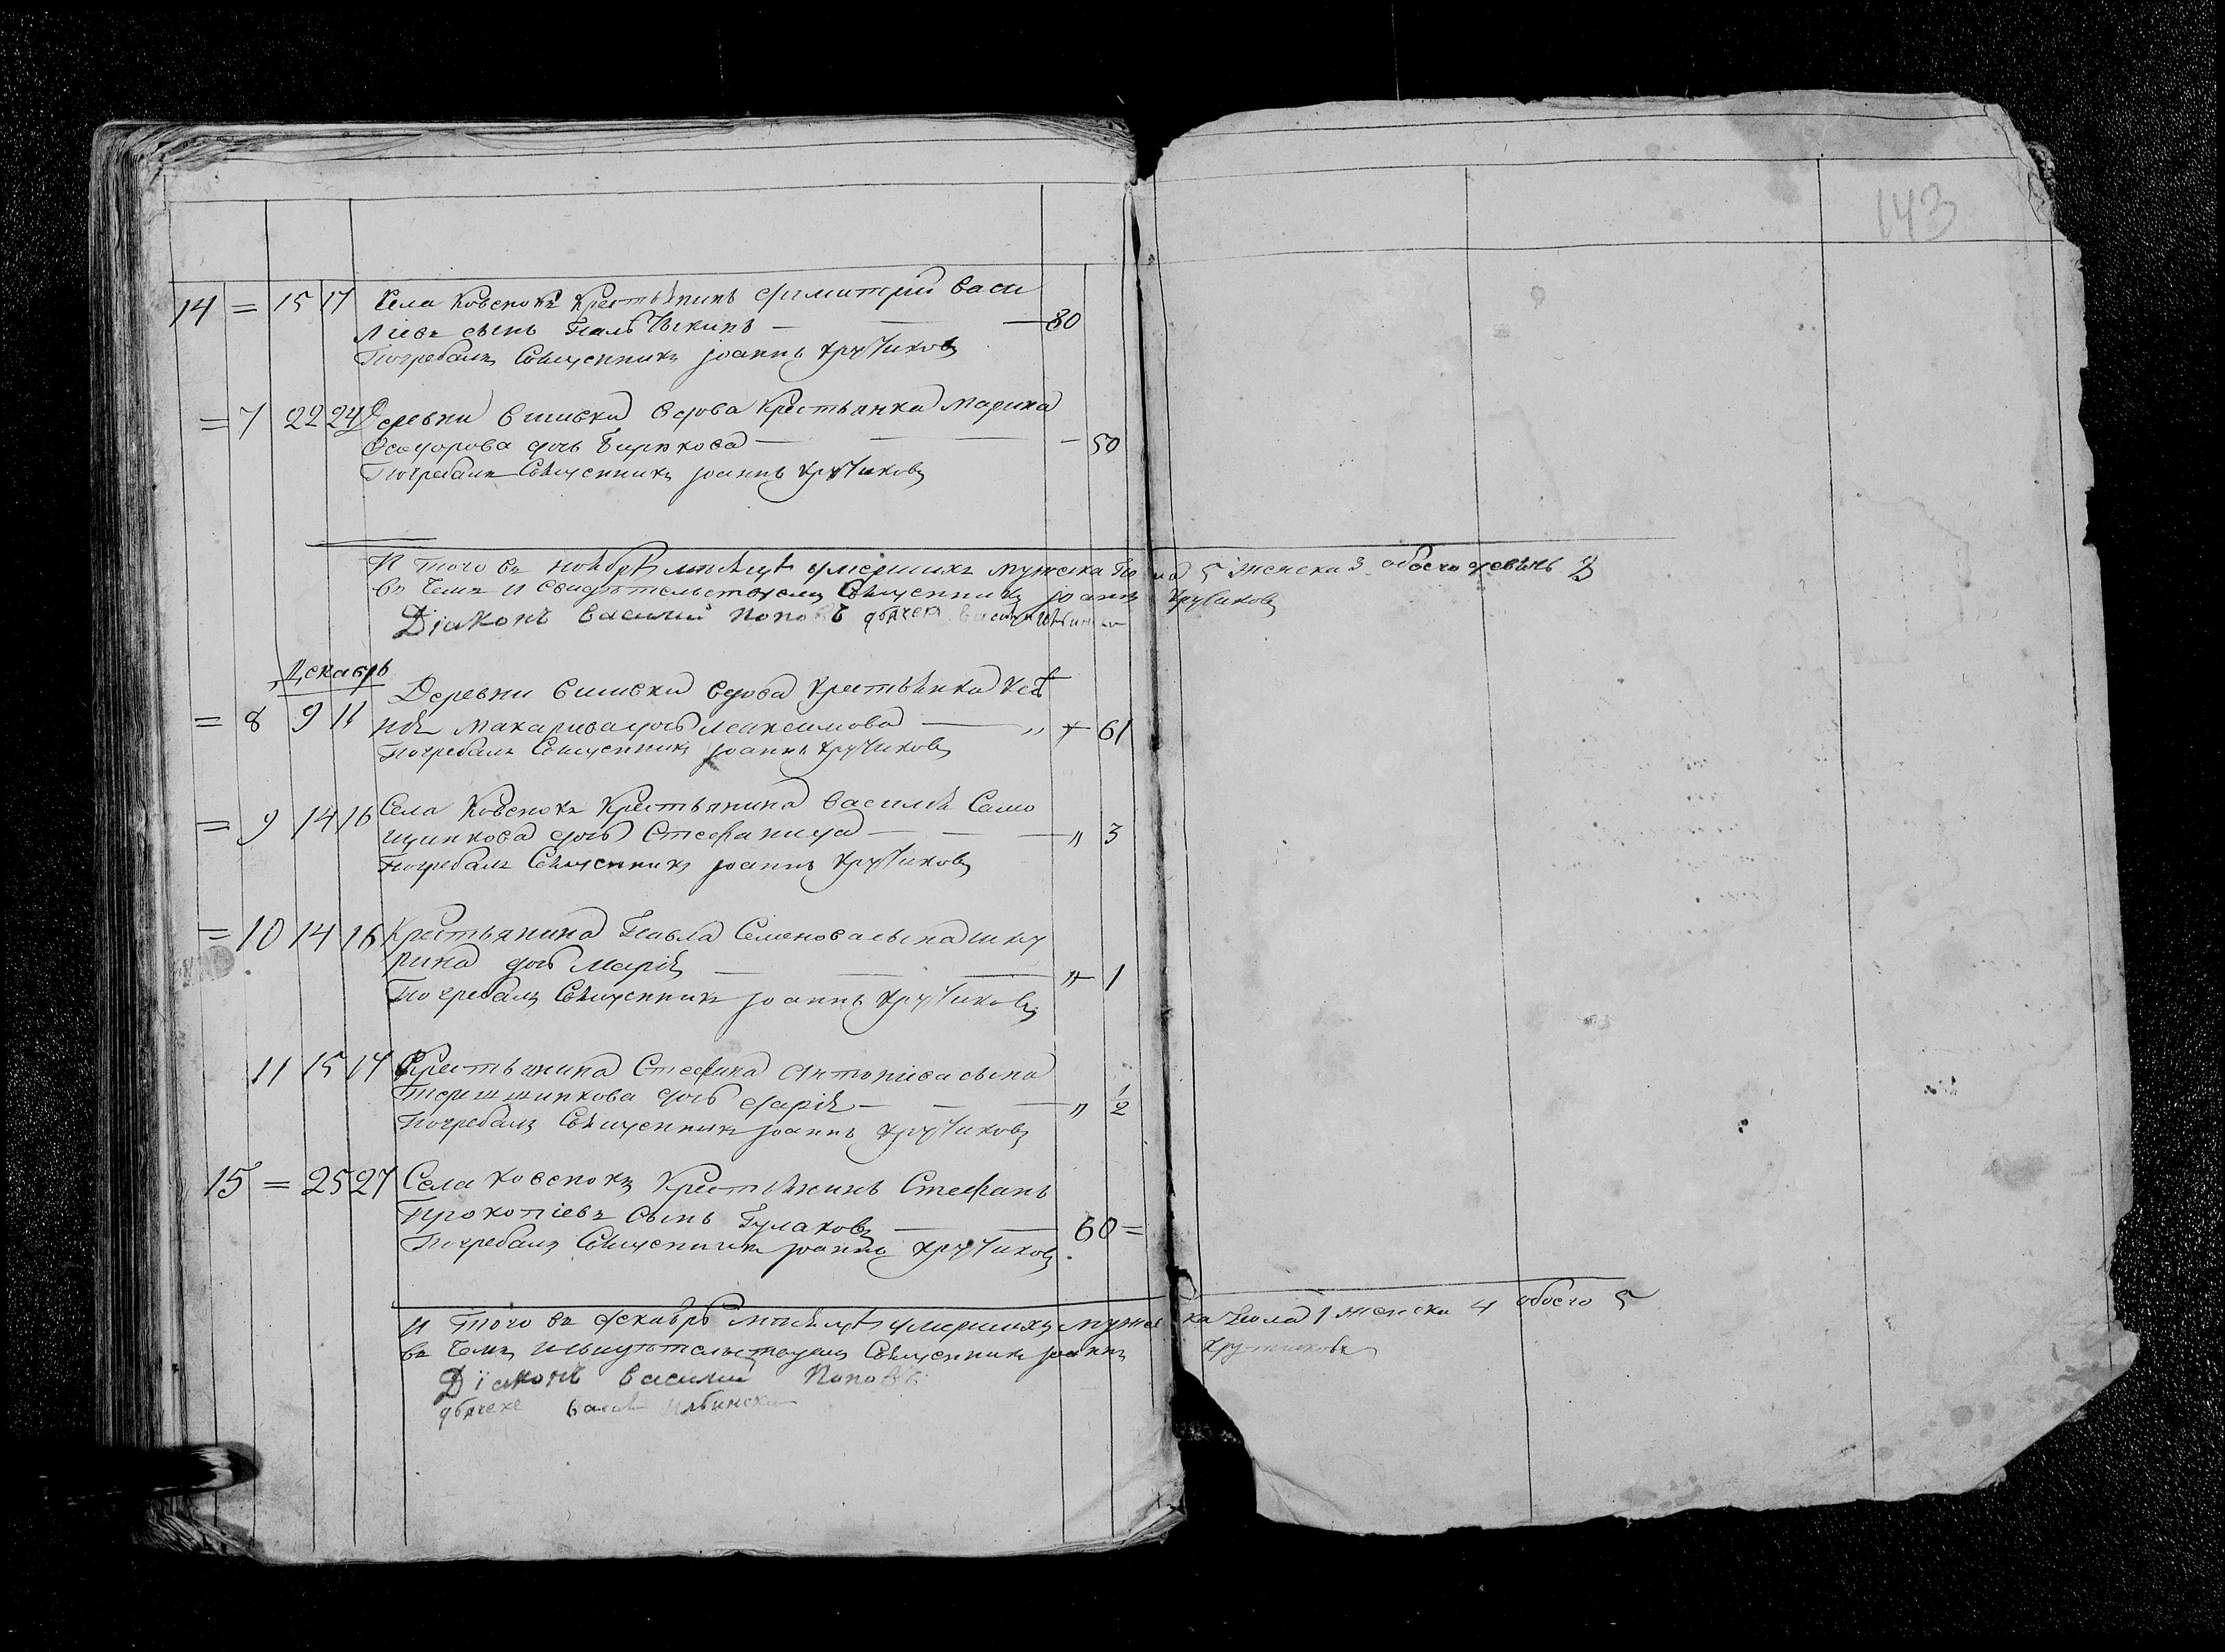 143
14 = 15 17 Села Ковенокъ Крестьянинъ Димитрий Васи
лиевъ сынъ — 80
Погребалъ Священникъ Иоаннъ Кручиковъ
= 7 22 24 Деревни Вдова Крестьянка Марина
Феодорова дочь Бирюкова — 50
Погребалъ Священникъ Иоаннъ Кручиковъ
И того въ ноябрѣ мѣсяцѣ умершихъ мужеска пола 5 женска 3 обоего
въ чемъ и свидѣтельствуемъ Священникъ Иоаннъ Кручиковъ
Дiаконъ Василий Поповъ дьячекъ
Декабрь
= 8 9 11 Деревни Вдова Крестьянка Ксѣ
нія Макариева дочь Максимова — „ 61
Погребалъ Священникъ Иоаннъ Кручиковъ
= 9 14 16 Села Ковенокъ Крестьянина Василія Само
щинкова дочь Стефанида — „ 3
Погребалъ Священникъ Иоаннъ Кручиковъ
= 10 14 16 Крестьянина Павла Семенова сына Шку
рина дочь Марія — „ 1
Погребалъ Священникъ Иоаннъ Кручиковъ
11 15 17 Крестьянина Стефана Антоніева сына
дочь Дарія — „ 1/2
Погребалъ Священникъ Иоаннъ Кручиковъ
15 = 25 27 Села Ковенокъ Крестьянинъ Стефанъ
Прокопіевъ сынъ Гулаковъ — 60 =
Погребалъ Священникъ Иоаннъ Кручиковъ
И того въ декабрѣ мѣсяцѣ умершихъ мужеска пола 1 женска 4 обоего 5
въ чемъ и свидѣтельствуемъ Священникъ Иоаннъ Кручиковъ
Дiаконъ Василий Поповъ
дьячекъ Ильинский